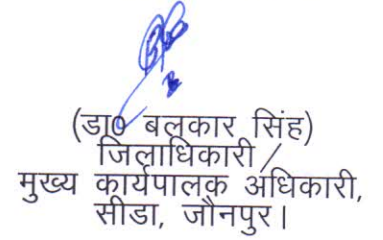 (डा० बलकार सिंह)
जिलाधिकारी /
मुख्य कार्यपालक अधिकारी,
सीडा, जौनपुर।